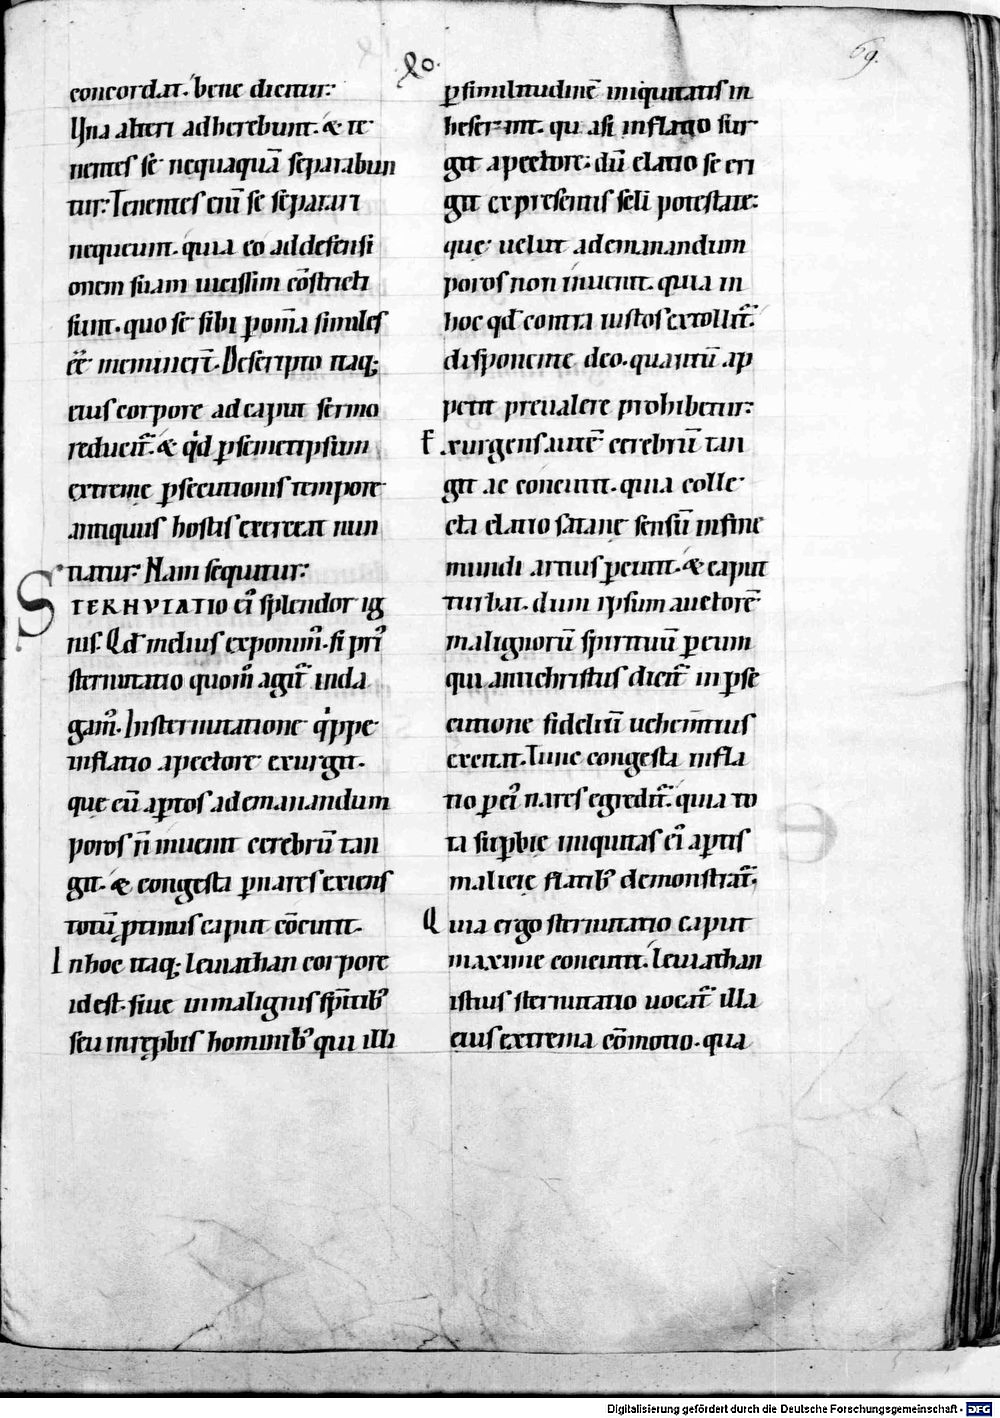 69.
concordat. bene dicitur:
Una alteri adherebunt. & te
nentes se nequaquā separabun
tur: Tenentes eni̅ se separari
nequeunt. quia eo addefensi
onem suam uicissim cōstricti
sunt. quo se sibi p om̅a similes
ēē meminer̅t. Descripto itaq;
eius corpore adcaput sermo
reducit̅. & qd̓ psemetipsum
extreme psecutionis tempore
antiquus hostis exerceat nun
tiatur: Nam sequitur:
STERNVTATIO ei̓ splendor ig
nis. Qd̅ melius exponim̓. si pri̓
sternutatio quom̅ agit̅ inda
gam̓. Insternutatione q̓ppe
inflatio apectore exurgit.
que cū aptos ademanandum
poros n̅ inuenit cerebrū tan
git. & congesta pnares exiens
totū ptinus caput cōcutit.
Inhoc itaq; leuiathan corpore
idest. siue inmalignis spi̅tib̓
seu inrepbis hominib̓ qui illi
psimilitudinē iniquitatis in
heserant. quasi inflatio sur
git apectore: dū elatio se eri
git expresentis sc̅li potestate:
que uelut ademanandum
poros non inuenit. quia in
hoc qd̅ contra iustos extollit̅.
disponente deo. quantū ap
petit preualere prohibetur:
Exurgens autē cerebrū tan
git ac concutit. quia colle
cta elatio satane sensū infine
mundi artius pcutit. & caput
turbat. dum ipsum auctorē
malignorū spirituū pcun
qui antichristus dicit̅ inpse
cutione fideliū uehem̅tius
excitat. Tunc congesta infla
tio p ei̓ nares egredit̅. quia to
ta supbie iniquitas ei̓ aptis
malicie flatib̓ demonstrat̅.
Quia ergo sternutatio caput
maxime concutit. leuiathan
istius sternutatio uocat̅ illa
eius extrema cōmotio. qua
Digitalisierung gefördert durch die Deutsche Forschungsgemeinschaft - DFG